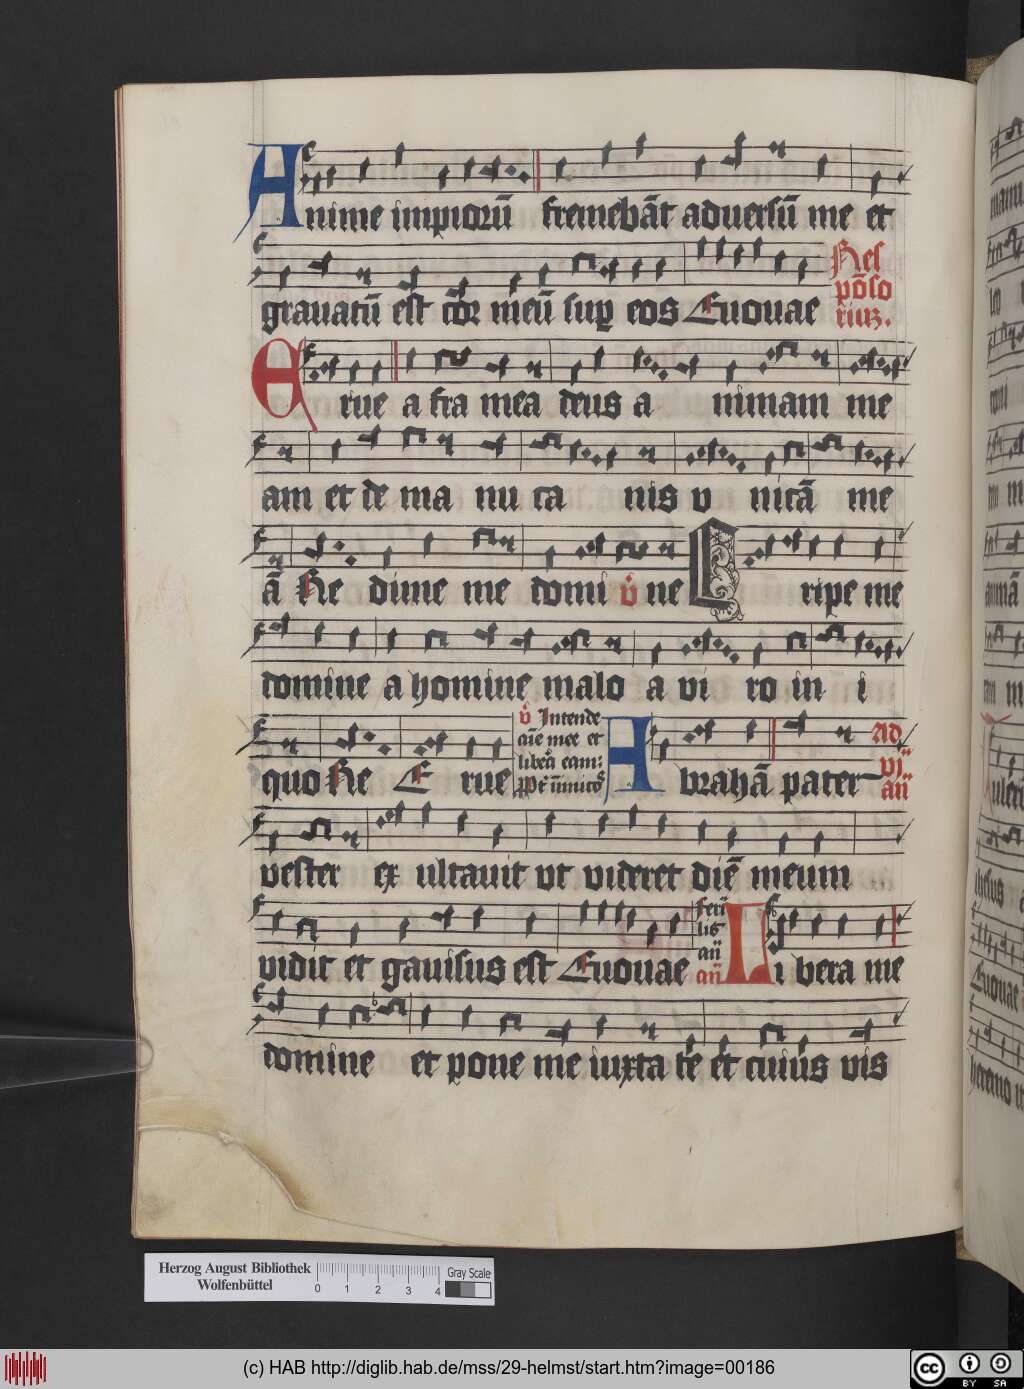 Anime impiorū fremebāt aduersū me et
grauatū est cor meū sup eos Euouae Res
põso
rius.
Erue a fra mea deus a nimam me
am et de ma nu ca nis v nicā me
ā Re dime me domi ne
Eripe me
domine a homine malo a vi ro in i
quo Re Erue
v Intende
aīe mee et
libera eam:
Abrahā pater Ad
vr̄
an̄
vester ex ultauit vt videret diē meum
vidit et gauisus est Euouae
an̄
Libera me
domine et pone me iuxta te et cuius vis
Herzog August Bibliothek
Wolfenbüttel
0 1 2 3 4
Gray Scale
(c) HAB http://diglib.hab.de/mss/29-helmst/start.htm?image=00186
cc BY SA